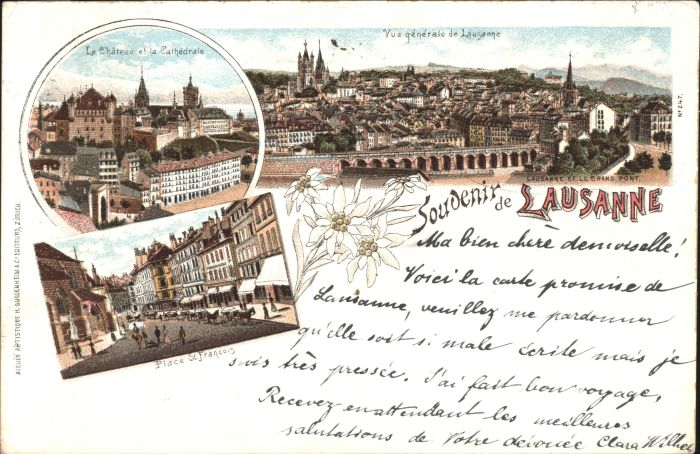 Le Château et la Cathédrale
Vue générale de Lausanne
No 247.
LAUSANNE ET LE GRAND PONT.
Souvenir de LAUSANNE
Place St. François
ATELIER ARTISTIQUE H. GUGGENHEIM & Co EDITEURS, ZÜRICH.
Ma bien chère demoiselle!
Voici la carte promise de
Lausanne, veuillez me pardonner
qu'elle soit si male écrite mais je
suis très pressée. J'ai fait bon voyage,
Recevez en attendant les meilleures
salutations de Votre dévouée Clara